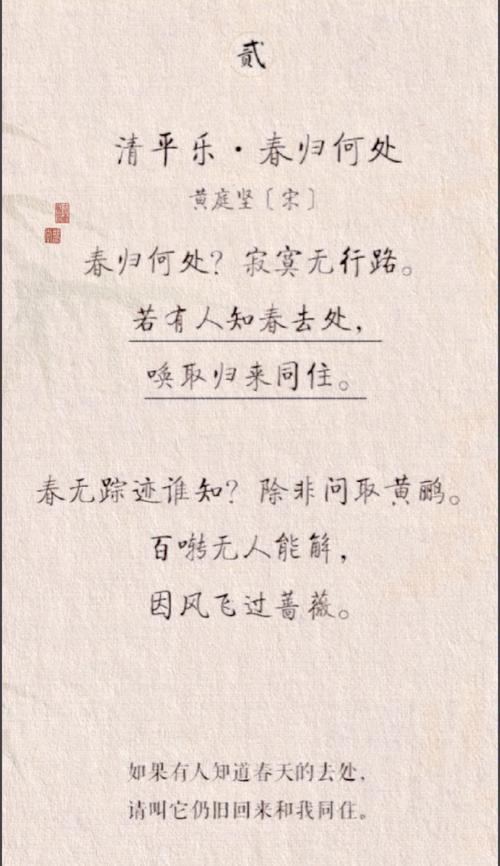 贰
清平乐·春归何处
黄庭坚〔宋〕
春归何处？寂寞无行路。
若有人知春去处，
唤取归来同住。
春无踪迹谁知？除非问取黄鹂。
百啭无人能解，
因风飞过蔷薇。
如果有人知道春天的去处，
请叫它仍旧回来和我同住。